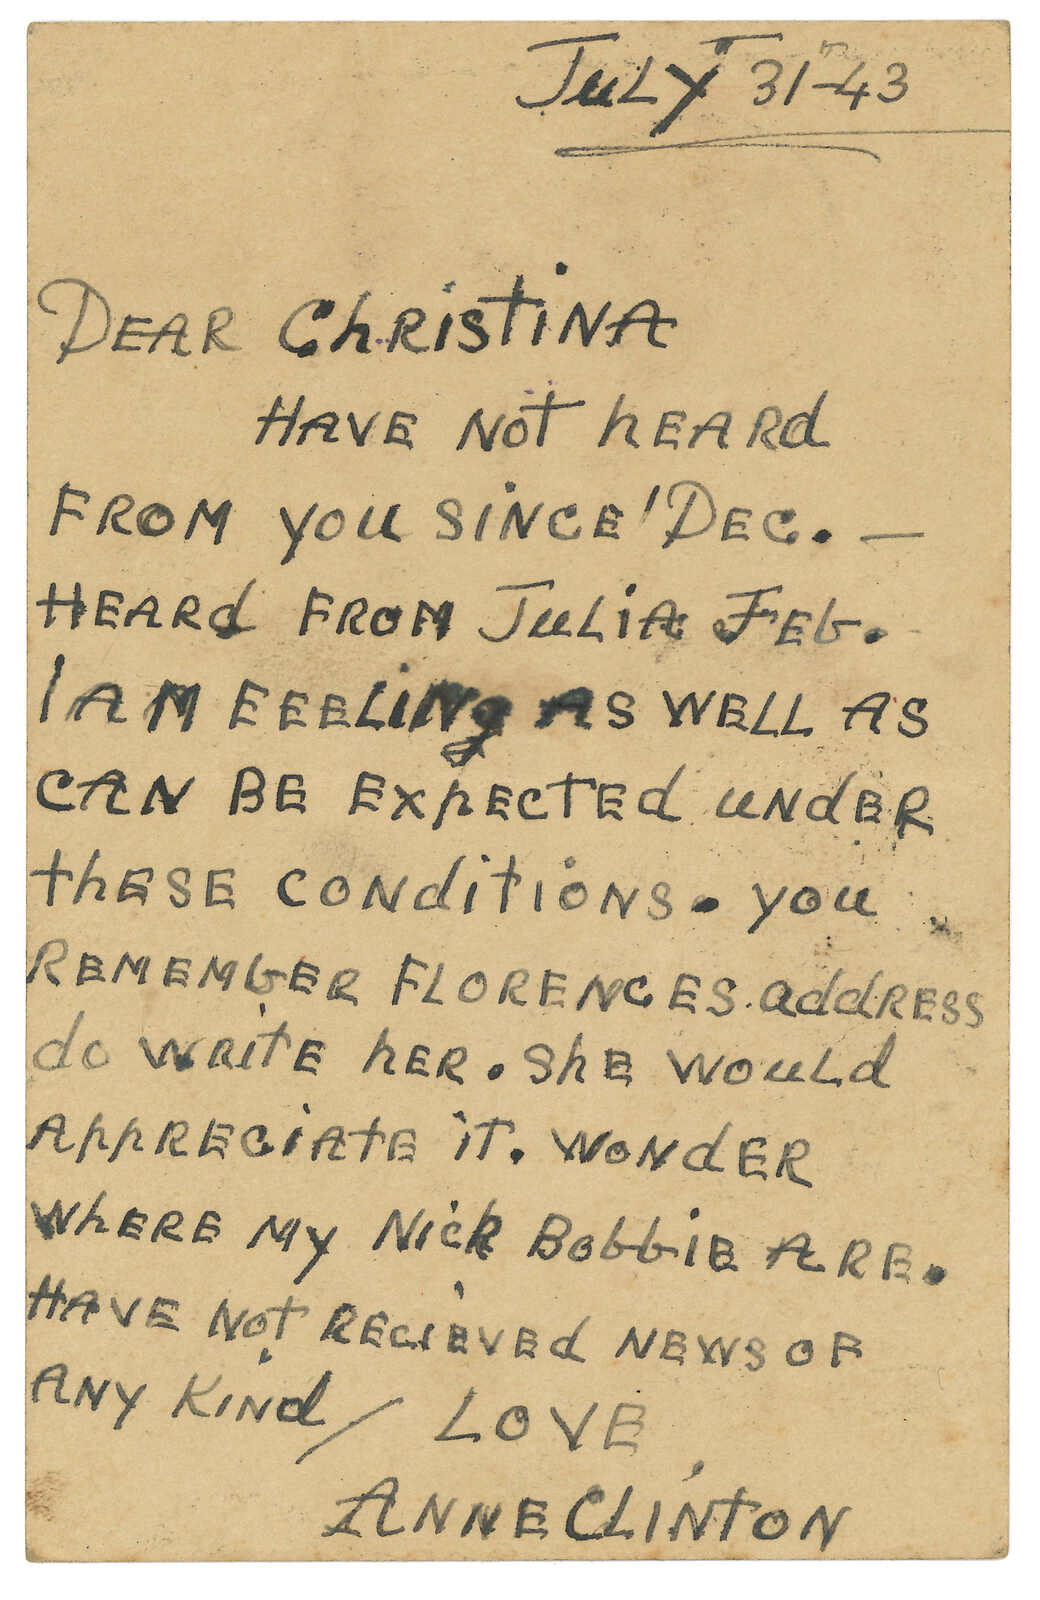 JULY 31-43
DEAR ChRiSTiNA
HAVE NOT hEARd
FROM YOU SINCE DEC. —
HEARd FROM JULiA FEb.
I AM FEELiNg AS WELL AS
CAN BE EXpECTEd UNdER
thESE CONditiONS. YOU
REMEMbER FLORENCES addRESS
do WRitE hER. ShE WOULd
AppRECiAtE iT. WONdER
WhERE MY NicK BobbiE ARE.
HAVE NOT RECiEVEd NEWS OF
ANY KiNd / LOVE
ANNE CLiNTON